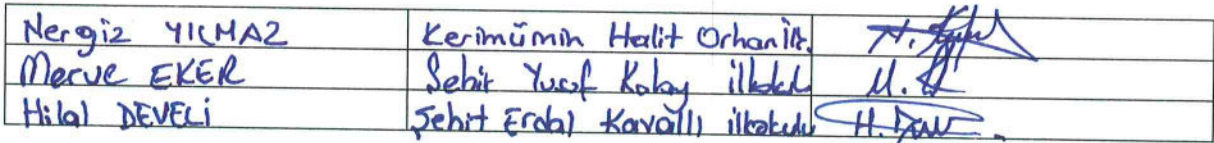 Nergiz YILMAZ Kerimümin Halit Orhan İlk.
Merve EKER Şehit Yusuf Kalay İlkokulu
Hilal DEVELİ Şehit Erdal Kavallı ilkokulu